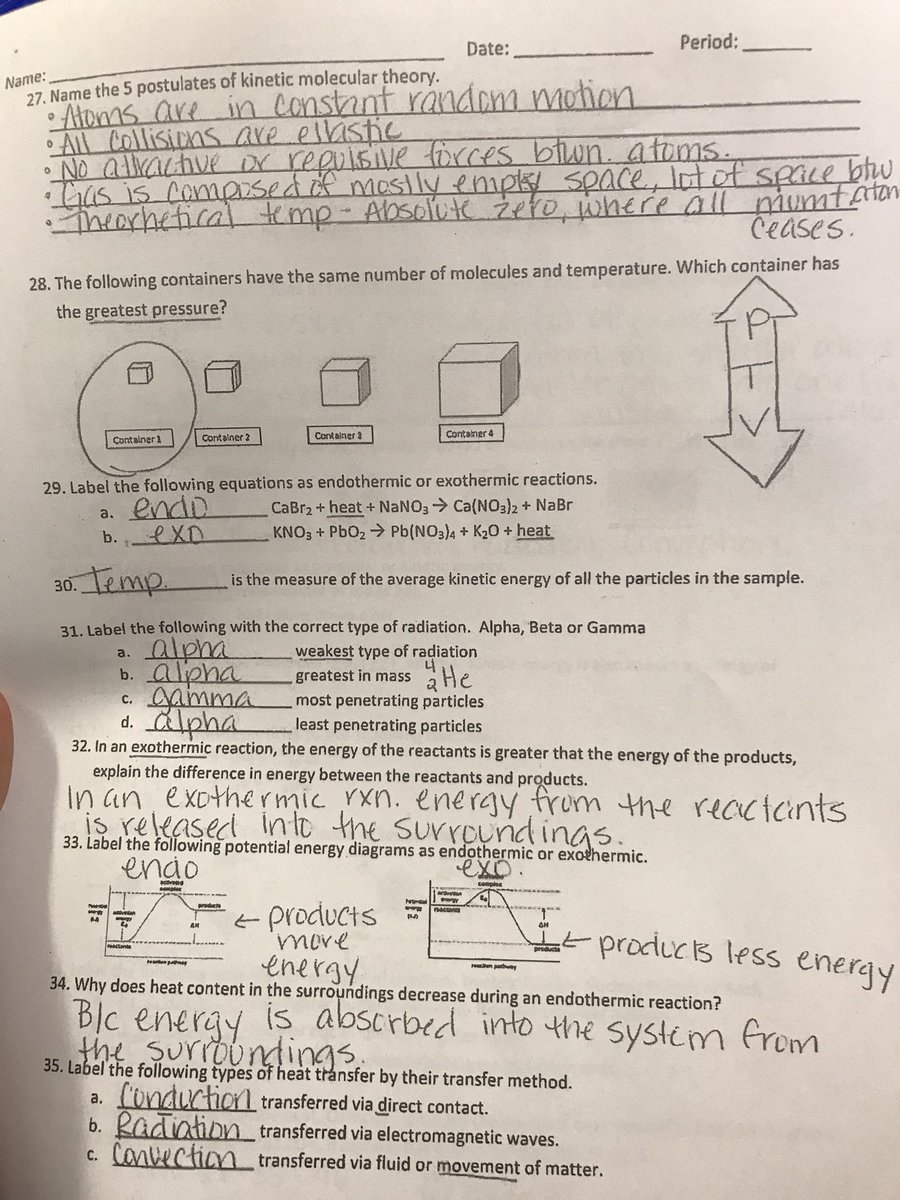 Name: Date: Period:
27. Name the 5 postulates of kinetic molecular theory.
• Atoms are in constant random motion
• All collisions are ellastic
• No attractive or repulsive forces btwn. atoms.
• Gas is composed of mostly empty space, lot of space btw
• Theorhetical temp - Absolute zero, where all mvmt
ceases.
28. The following containers have the same number of molecules and temperature. Which container has
the greatest pressure?
P
T
V
Container 1 Container 2 Container 3 Container 4
29. Label the following equations as endothermic or exothermic reactions.
a. endo CaBr₂ + heat + NaNO₃ → Ca(NO₃)₂ + NaBr
b. exo KNO₃ + PbO₂ → Pb(NO₃)₄ + K₂O + heat
30. Temp. is the measure of the average kinetic energy of all the particles in the sample.
31. Label the following with the correct type of radiation. Alpha, Beta or Gamma
a. alpha weakest type of radiation
b. alpha greatest in mass ⁴₂He
c. gamma most penetrating particles
d. alpha least penetrating particles
32. In an exothermic reaction, the energy of the reactants is greater that the energy of the products,
explain the difference in energy between the reactants and products.
In an exothermic rxn. energy from the reactants
is released into the surroundings.
33. Label the following potential energy diagrams as endothermic or exothermic.
endo exo.
activated complex
products
activation energy
Ea
ΔH
reactants
reaction pathway
← products
more
energy
complex
activation energy
Ea
reactants
ΔH
products
reaction pathway
← products less energy
34. Why does heat content in the surroundings decrease during an endothermic reaction?
B/c energy is absorbed into the system from
the surroundings.
35. Label the following types of heat transfer by their transfer method.
a. Conduction transferred via direct contact.
b. Radiation transferred via electromagnetic waves.
c. Convection transferred via fluid or movement of matter.